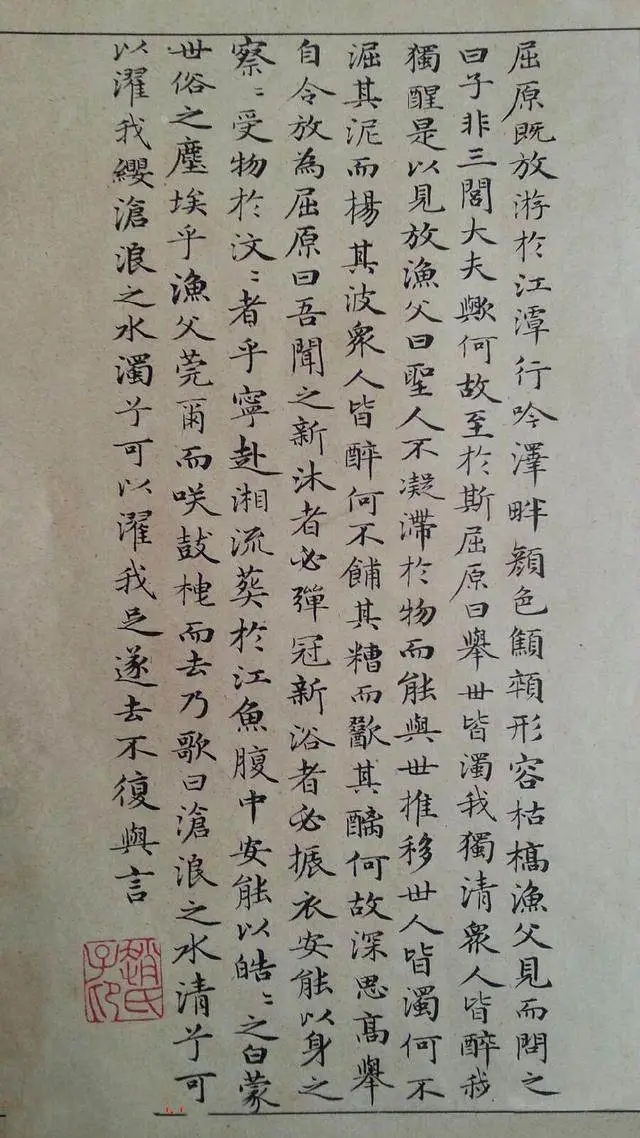 屈原既放游於江潭行吟澤畔顏色顦顇形容枯槁漁父見而問之
曰子非三閭大夫歟何故至於斯屈原曰舉世皆濁我獨清衆人皆醉我
獨醒是以見放漁父曰聖人不凝滯於物而能與世推移世人皆濁何不
淈其泥而楊其波衆人皆醉何不餔其糟而歠其醨何故深思高舉
自令放為屈原曰吾聞之新沐者必彈冠新浴者必振衣安能以身之
察〻受物於汶〻者乎寧赴湘流葬於江魚腹中安能以皓〻之白蒙
世俗之塵埃乎漁父莞爾而咲鼓枻而去乃歌曰滄浪之水清兮可
以濯我纓滄浪之水濁兮可以濯我足遂去不復與言
趙氏子印